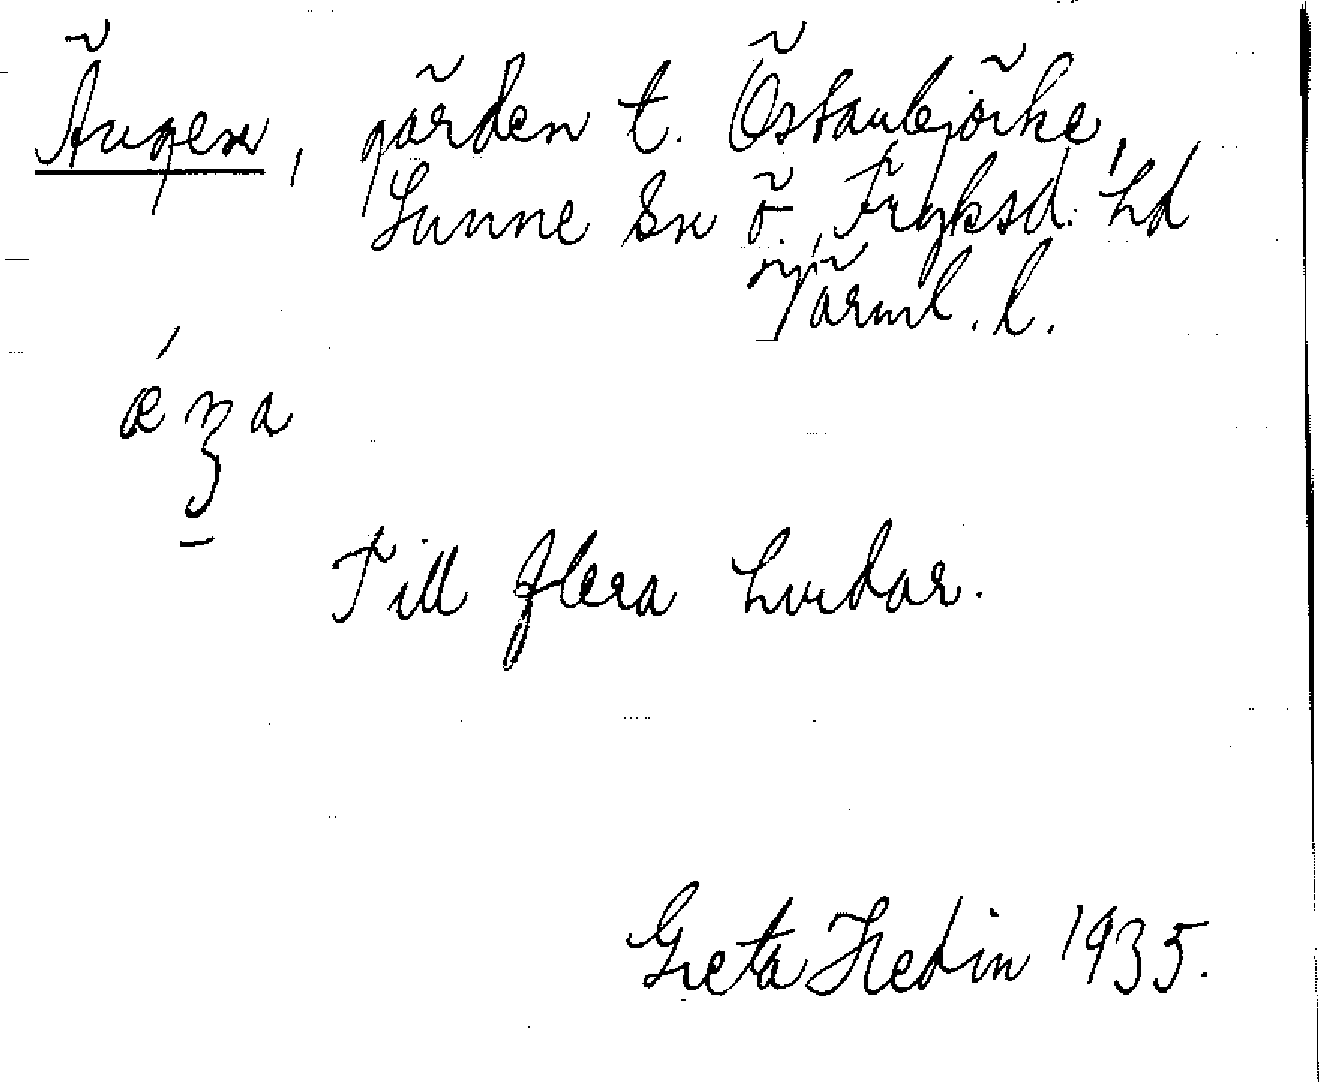 Ängen, gärden t. Östanbjörke,
Sunne Sn Ö. Fryksd. hd
Värml. l.
ǽŋa
Till flera hvdar.
Greta Hedin 1935.